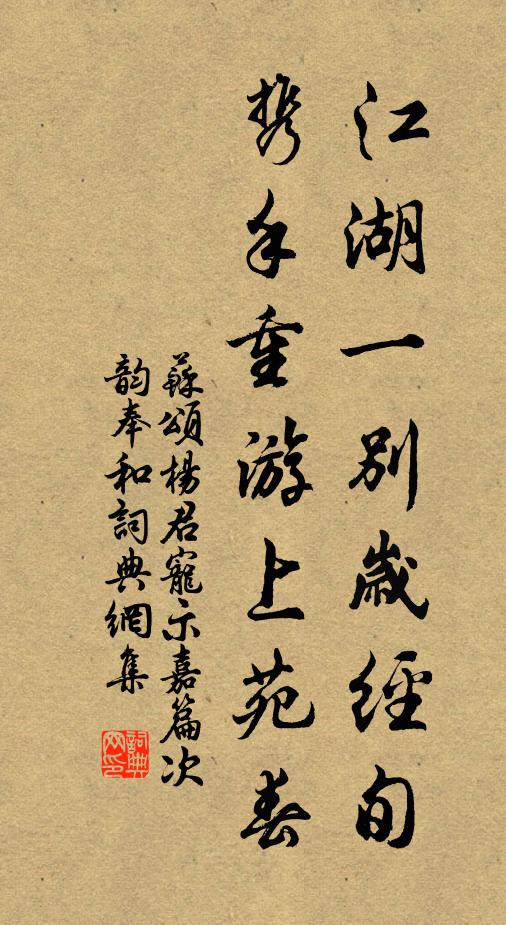 江湖一别歲經旬
携手重游上苑春
蘇頌楊君寵示嘉篇次
韵奉和詞典網集
詞典網印